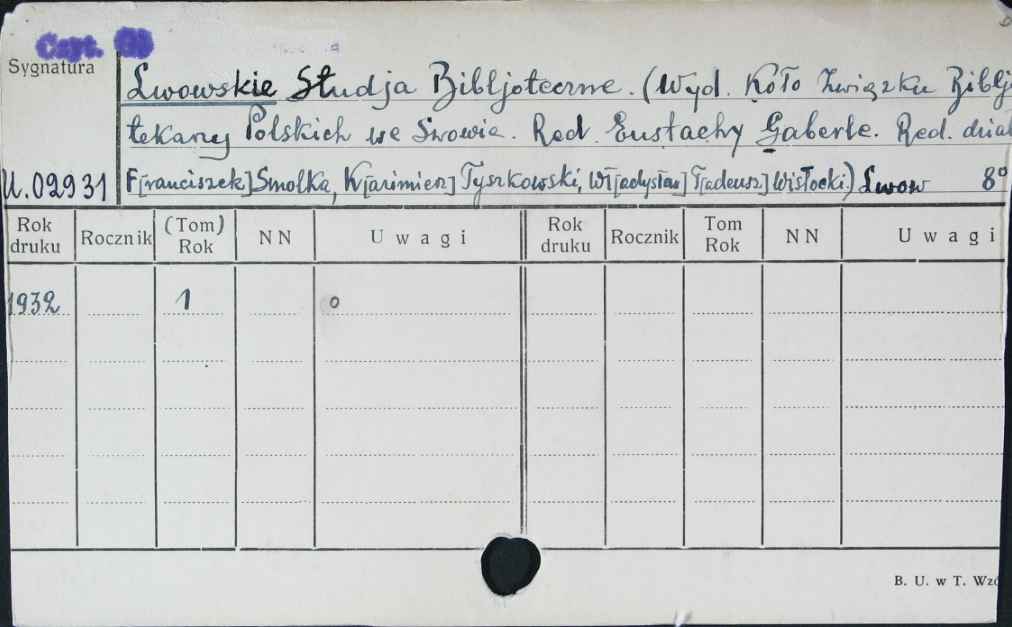 Czyt.
Sygnatura
Lwowskie Studja Bibljoteczne. (Wyd. Koło Związku Biblj
tekarzy Polskich we Lwowie. Red. Eustachy Gaberle. Red. dział
U.02931 F[ranciszek] Smolka, K[azimierz] Tyszkowski, Wł[adysław] T[adeusz] Wisłocki.) Lwow 8°
Rok druku Rocznik (Tom) Rok NN Uwagi Rok druku Rocznik Tom Rok NN Uwagi
1932 1 o
B. U. w T. Wzó